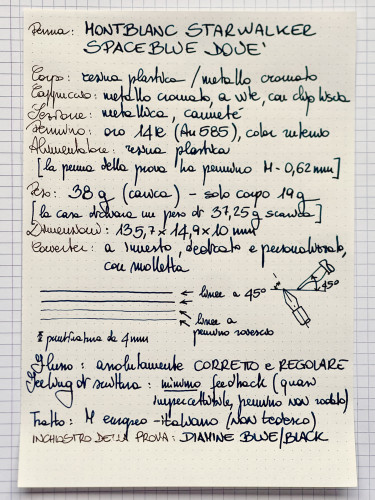 Penna: MONTBLANC STARWALKER
SPACEBLUE DOUE'
Corpo: resina plastica / metallo cromato
Cappuccio: metallo cromato, a vite, con clip liscia
Sezione: metallica, canneté
Pennino: oro 14K (Au 585), color rutenio
Alimentatore: resina plastica
[la penna della prova ha pennino M - 0,62mm]
Peso: 38 g (carica) - solo corpo 19 g
[la casa dichiara un peso di 37,25 g scarica]
Dimensioni: 135,7 x 14,9 x 10 mm
Converter: a innesto, dedicato e personalizzato,
con molletta
linee a 45°
45°
linee a
pennino rovescio
punteggiatura da 4mm
Flusso: assolutamente CORRETTO e REGOLARE
Feeling di scrittura: minimo feedback (quasi
impercettibile, pennino non rodato)
Tratto: M europeo-italiano (NON tedesco)
INCHIOSTRO DELLA PROVA: DIAMINE BLUE/BLACK